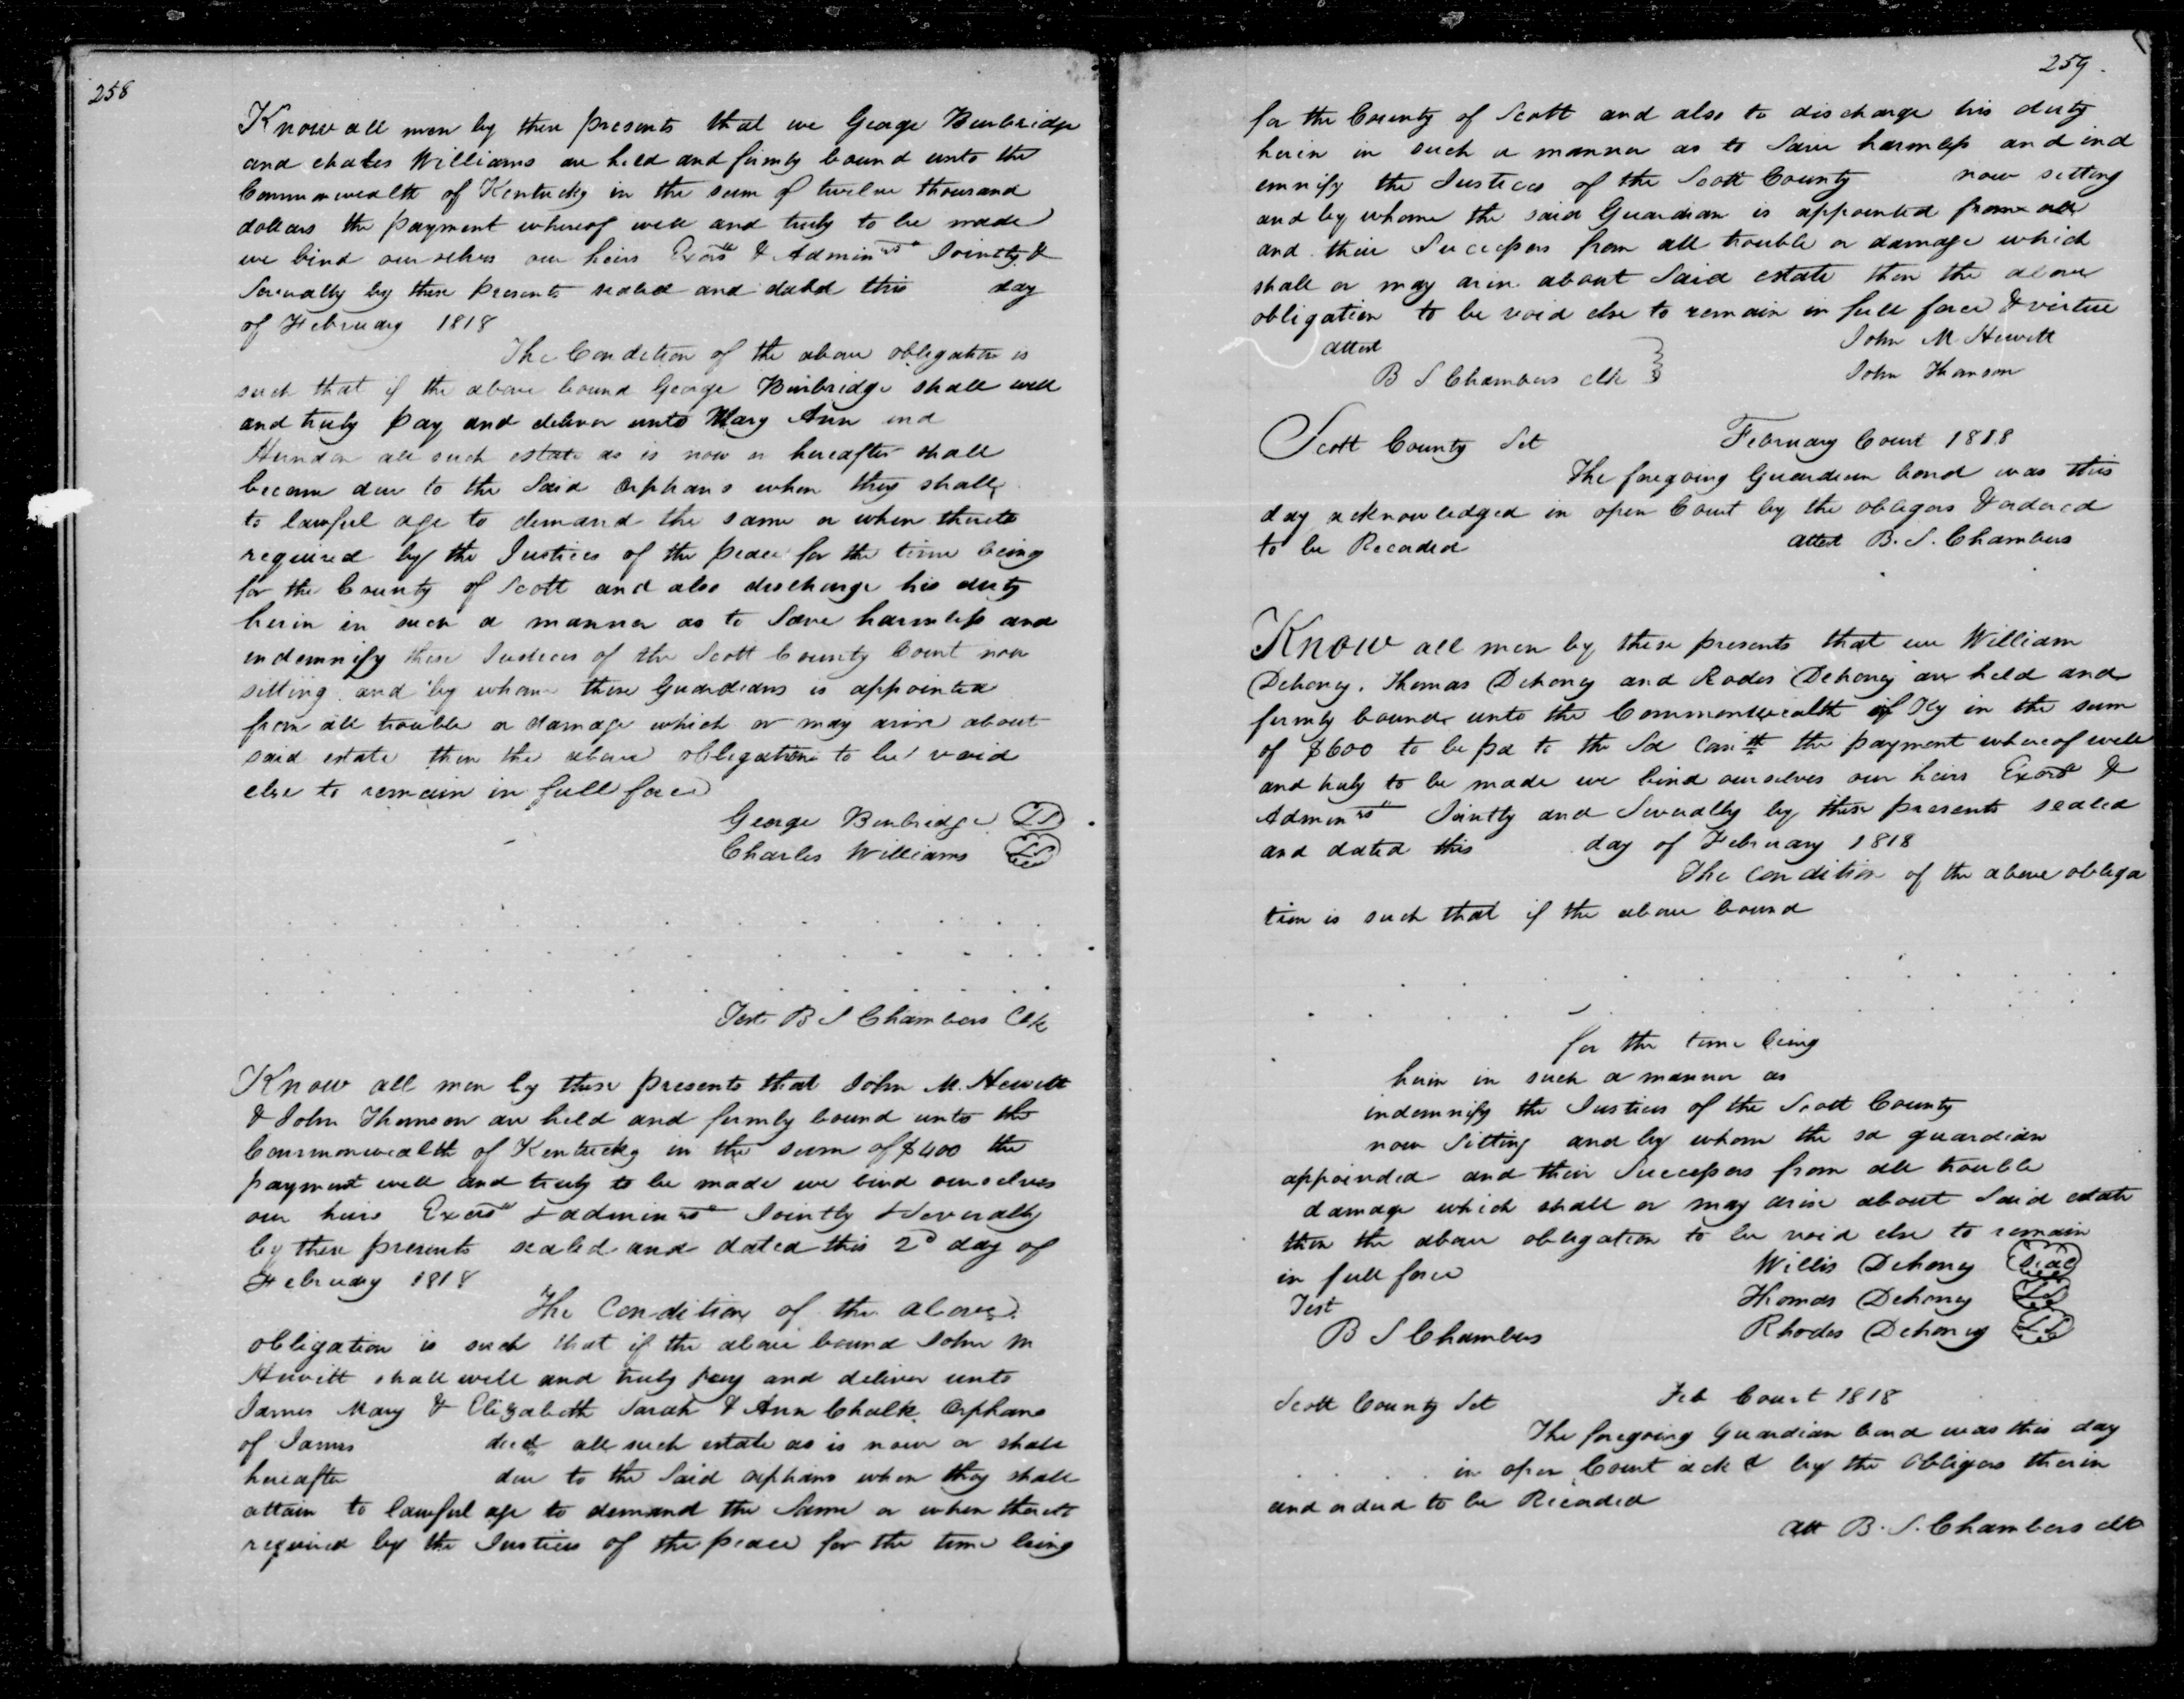 258
Know all men by these presents that we George Burbridge
and chales Williams are held and firmly bound unto the
Commonwealth of Kentucky in the sum of twelve thousand
dollars the payment whereof well and truly to be made
we bind ourselves our heirs Exors & Adminrs Jointly &
Severally by these presents sealed and dated this day
of February 1818
The Condition of the above obligation is
such that if the above bound George Burbridge shall well
and truly pay and deliver unto Mary Ann and
Herndon all such estate as is now or hereafter shall
become due to the Said Orphans when they shall
to lawful age to demand the same or when thereto
required by the Justices of the peace for the time being
for the County of Scott and also discharge his duty
herin in such a manner as to Save harmless and
indemnify these Justices of the Scott County Court now
sitting and by whom these Guardians is appointed
from all trouble or damage which or may arise about
said estate then the above obligation to be void
else to remain in full force
George Burbridge LS
Charles Williams LS
Test B S Chambers Clk
Know all men by these presents that John M. Hewitt
& John Thomson are held and firmly bound unto the
Commonwealth of Kentucky in the sum of $400 the
payment well and truly to be made we bind ourselves
our heirs Exors & adminrs Jointly & Severally
by these presents sealed and dated this 2d day of
February 1818
The Condition of the above
obligation is such that if the above bound John M
Hewitt shall well and truly pay and deliver unto
James Mary & Elizabeth Sarah & Ann Chalk Orphans
of James decd all such estate as is now or shall
hereafter due to the Said orphans when they shall
attain to lawful age to demand the Same or when thereto
required by the Justices of the peace for the time being
259.
for the County of Scott and also to discharge his duty
herin in such a manner as to Save harmless and ind
emnify the Justices of the Scott County now setting
and by whome the said Guardian is appointed from all
and their Successors from all trouble or damage which
shall or may arise about Said estate then the above
obligation to be void else to remain in full force & virtue
attest John M Hewitt
B S Chambers clk John Thomson
Scott County Sct February Court 1818
The foregoing Guardian bond was this
day acknowledged in open Court by the obligors & ordered
to be Recorded attest B. S. Chambers
Know all men by these presents that we William
Dehoney, Thomas Dehoney and Rodes Dehoney are held and
firmly bound unto the Commonwealth of Ky in the sum
of $600 to be pd to the Sd Comth the payment whereof well
and truly to be made we bind ourselves our heirs Exors &
Adminrs Jointly and Severally by these presents sealed
and dated this day of February 1818
The condition of the above obliga
tion is such that if the above bound
for the time being
herin in such a manner as
indemnify the Justices of the Scott County
now Sitting and by whom the sd guardian
appointed and their Successors from all trouble
damage which shall or may arise about Said estate
then the above obligation to be void else to remain
in full force Willis Dehoney Seal
Test Thomas Dehoney LS
B S Chambers Rhodes Dehoney LS
Scott County Sct Feb Court 1818
The foregoing Guardian bond was this day
in open Court ackd by the Obligors therin
and ordered to be Recorded
att B. S. Chambers clk